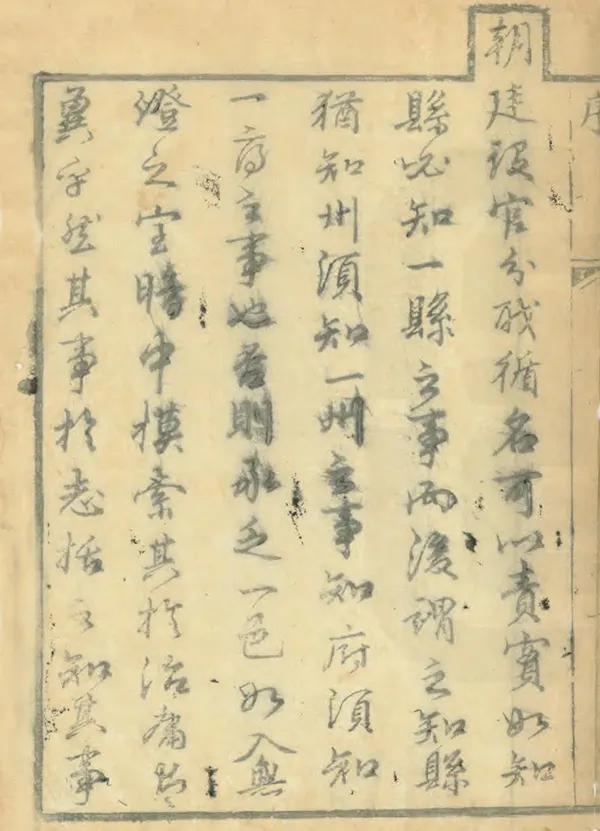 序
朝廷設官分職循名可以責實如知
縣必知一縣之事而後謂之知縣
猶知州須知一州之事知府須知
一府之事也否則承乏一邑如入無
燈之室暗中摸索其於治庸
冀乎然其事於志括之知其事